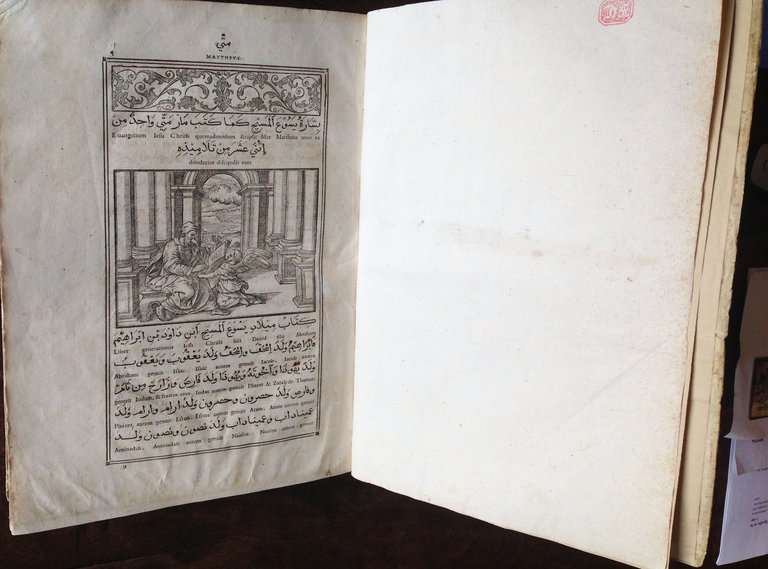 متي
MATTHEVS.
بشارة يسوع المسيح كما كتب مار متي واحد من
Euangelium Iesu Christi quemadmodum scripsit Mar Matthæus unus ex
اثني عشر من تلاميذه
duodecim discipulis eius
كتاب ميلاد يسوع المسيح ابن داود بن ابراهيم
Liber generationis Iesu Christi filii Dauid filii Abraham
فابراهيم ولد اسحق واسحق ولد يعقوب ويعقوب
Abraham genuit Isaac. Isaac autem genuit Iacob. Iacob autem
ولد يهودا واخوته ويهودا ولد فارص وزارح من تامر
genuit Iudam, & fratres eius. Iudas autem genuit Phares & Zarah de Thamar.
وفارص ولد حصرون وحصرون ولد ارام وارام ولد
Phares autem genuit Esron. Esron autem genuit Aram. Aram autem genuit
عميناداب وعميناداب ولد نصون ونصون ولد
Aminadab. Aminadab autem genuit Naasson. Naasson autem genuit